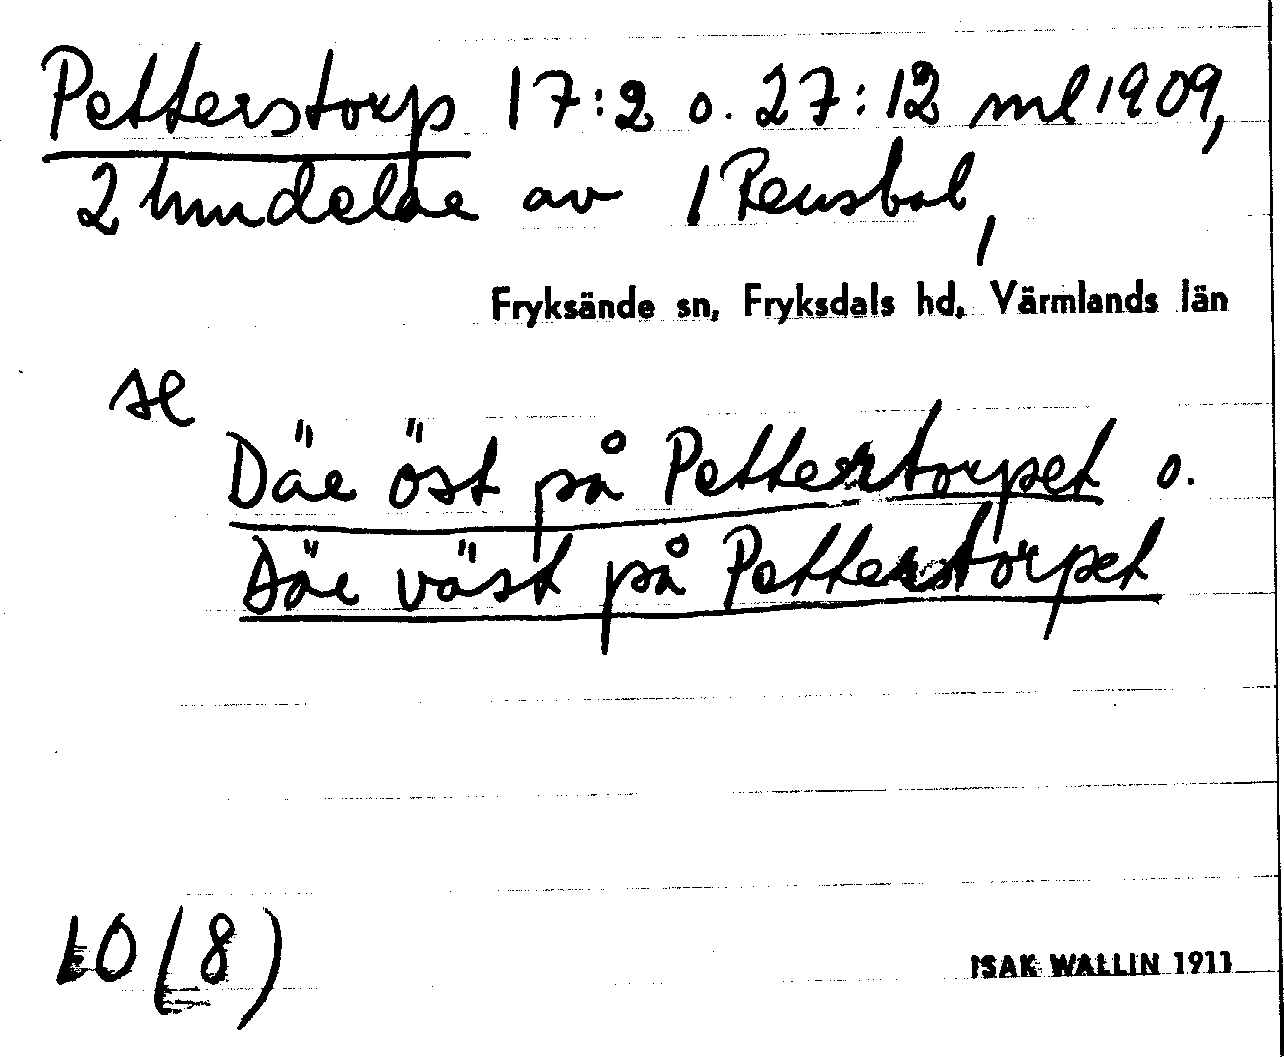 Petterstorp 17:2 o. 27:12 ml 1909,
2 hmdelar av 1 Rensbol,
Fryksände sn, Fryksdals hd, Värmlands län
se
Däe öst på Pettertorpet o.
Däe väst på Petterstorpet
10 (8)
ISAK WALLIN 1911